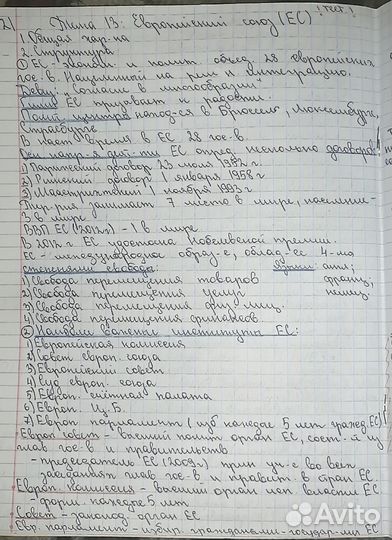 Тема 13: Европейский союз (ЕС) ! тест !
1. Общая хар-ка
2. Структура
① ЕС - эконом. и полит. объед. 28 европейских
гос-в. Нацеленный на рег. интеграцию.
Девиз: "Согласие в многообразии"
Гимн ЕС призывает к радости.
Полит. центры находятся в Брюсселе, Люксембурге,
Страсбурге.
В наст. время в ЕС 28 гос-в.
Осн. напр-я дея-ти ЕС опред. несколько договоров:
1) Парижский договор 23 июля 1952 г.
2) Римский договор 1 января 1958 г
3) Маастрихтский 1 ноября 1993 г
Тер-рия занимает 7 место в мире, население-
3 в мире
ВВП ЕС (2012г) - 1 в мире
В 2012 г. ЕС удостоена Нобелевской премии.
ЕС - международное образ-е, облад-ее 4-мя
степенями свобода: Языки: англ;
1) Свобода перемещения товаров франц;
2) Свобода перемещения услуг немец.
3) Свобода перемещения физ. лиц.
4) Свобода перемещения финансов.
② Наиболее важные институты ЕС:
1) Европейская комиссия
2) Совет европ. союза
3) Европейский совет
4) Суд европ. союза
5) Европ. счётная палата
6) Европ. Ц. Б.
7) Европ парламент (изб каждые 5 лет гражд. ЕС)
Европ совет - высший полит. орган ЕС, сост. из
глав гос-в и правительств
- председатель ЕС (2009г.) прин уч-е во всех
заседаниях глав гос-в и правит. стран ЕС.
Европ. комиссия - высший орган исп власти ЕС
- форм. каждые 5 лет
Совет - законод. орган ЕС
Евр. парламент - избир. гражданами государ-ми ЕС
Avito